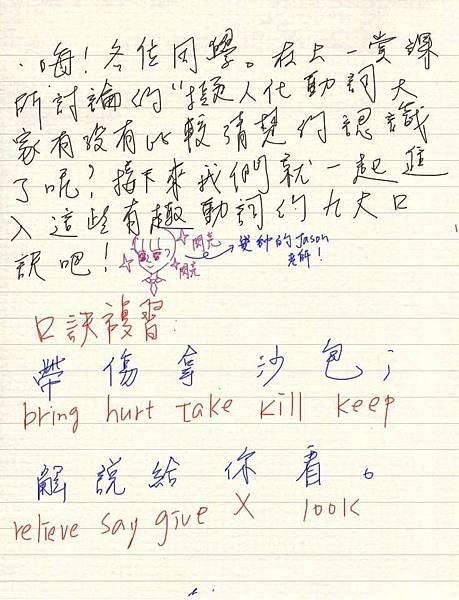 ·嗨!各位同學。在上一堂課
所討論的“擬人化動詞大
家有沒有比較清楚的認識
了呢?接下來我們就一起進
入這些有趣動詞的九大口
訣吧!
閃亮
閃亮
變帥的Jason
老師!
口訣複習:
帶 傷 拿 沙 包;
bring hurt take kill keep
解 說 給 你 看。
relieve say give X look